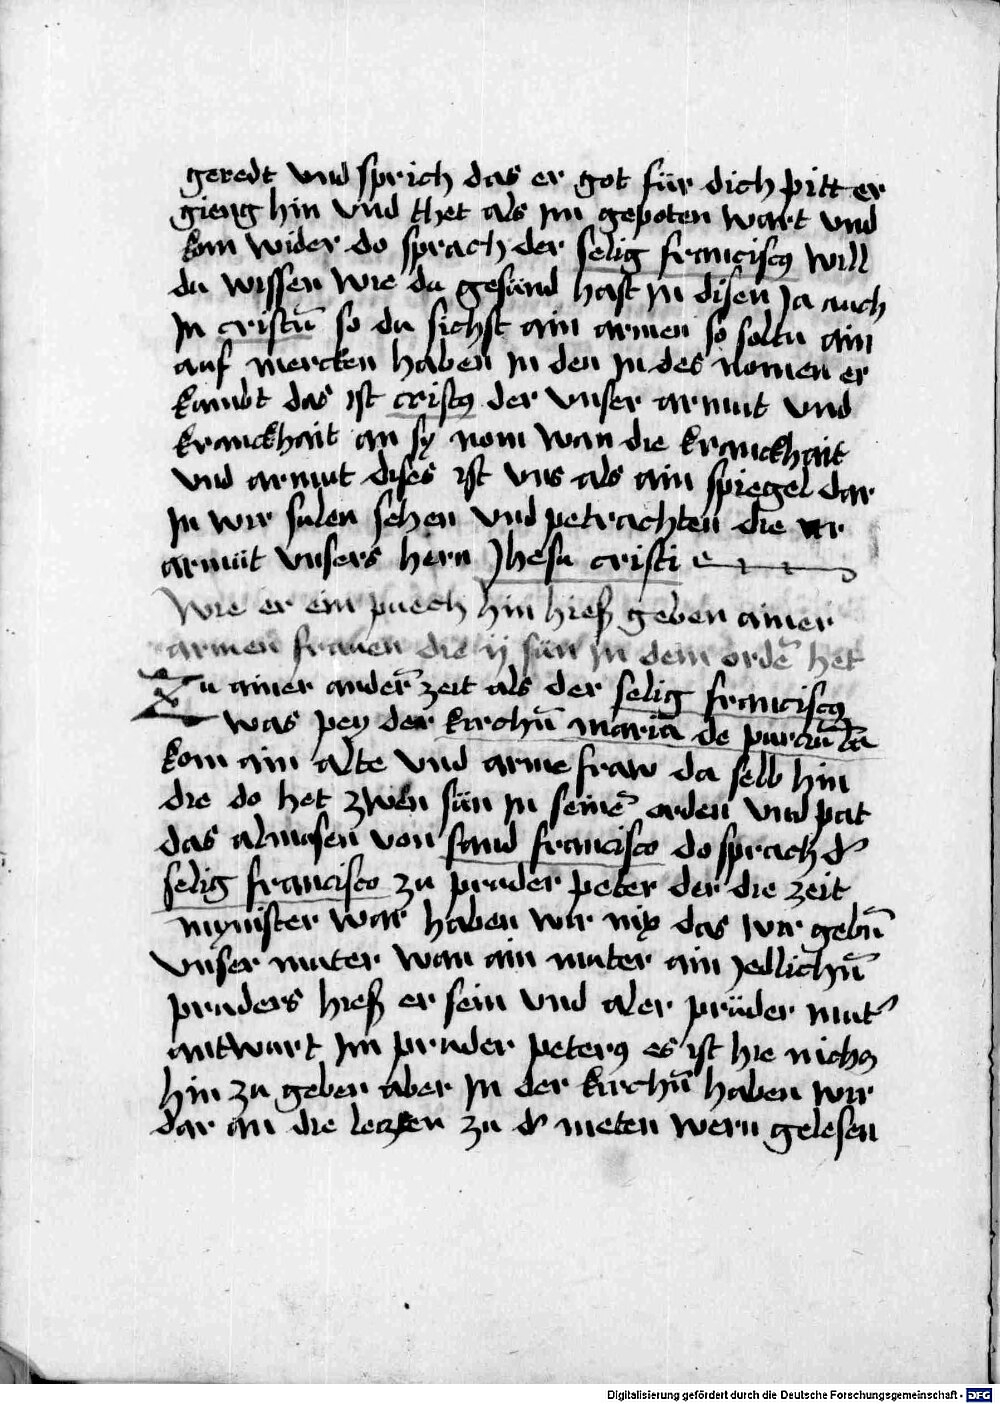 geredt vnd sprich das er got für dich pitt er
gieng hin vnd thet als jm gepoten wart vnd
kom wider do sprach der selig franciscꝯ will
du wissen wie du gesünd hast jn disen ja auch
jn cristū so du sichst ain armen so soltu ain
auf mercken haben jn den jn des nomen er
kumbt das ist cristꝯ der vnser armut vnd
kranckhait an sy nom wan die kranckhait
vnd armut dises ist vns als ain spiegel dar
jn wir sulen sehen vnd petrachten die
armüt vnsers hern jhesu cristi
Wie er ein puech hin hieß geben ainer
armen frauen die ij sün jn dem ordē het
Zu ainer anderñ zeit als der selig franciscꝯ
was pey der kirchñ maria de purcūla
kom ain alte vnd arme fraw da selb hin
die do het zwen sün jn seinē orden vnd pat
das almosen von sand francisco do sprach d'
selig francisco zu pruder peter der die zeit
mynister war haben wir nix das wir gebñ
vnser muter wan ain muter ain jedlichñ
pruders hieß er sein vnd aler prüder mut'
antwurt jm pruder peterꝯ es ist hie nichꝯ
hin zu geben aber jn der kirchñ haben wir
dar an die leczen zu d' meten wern gelesen
Digitalisierung gefördert durch die Deutsche Forschungsgemeinschaft - DFG